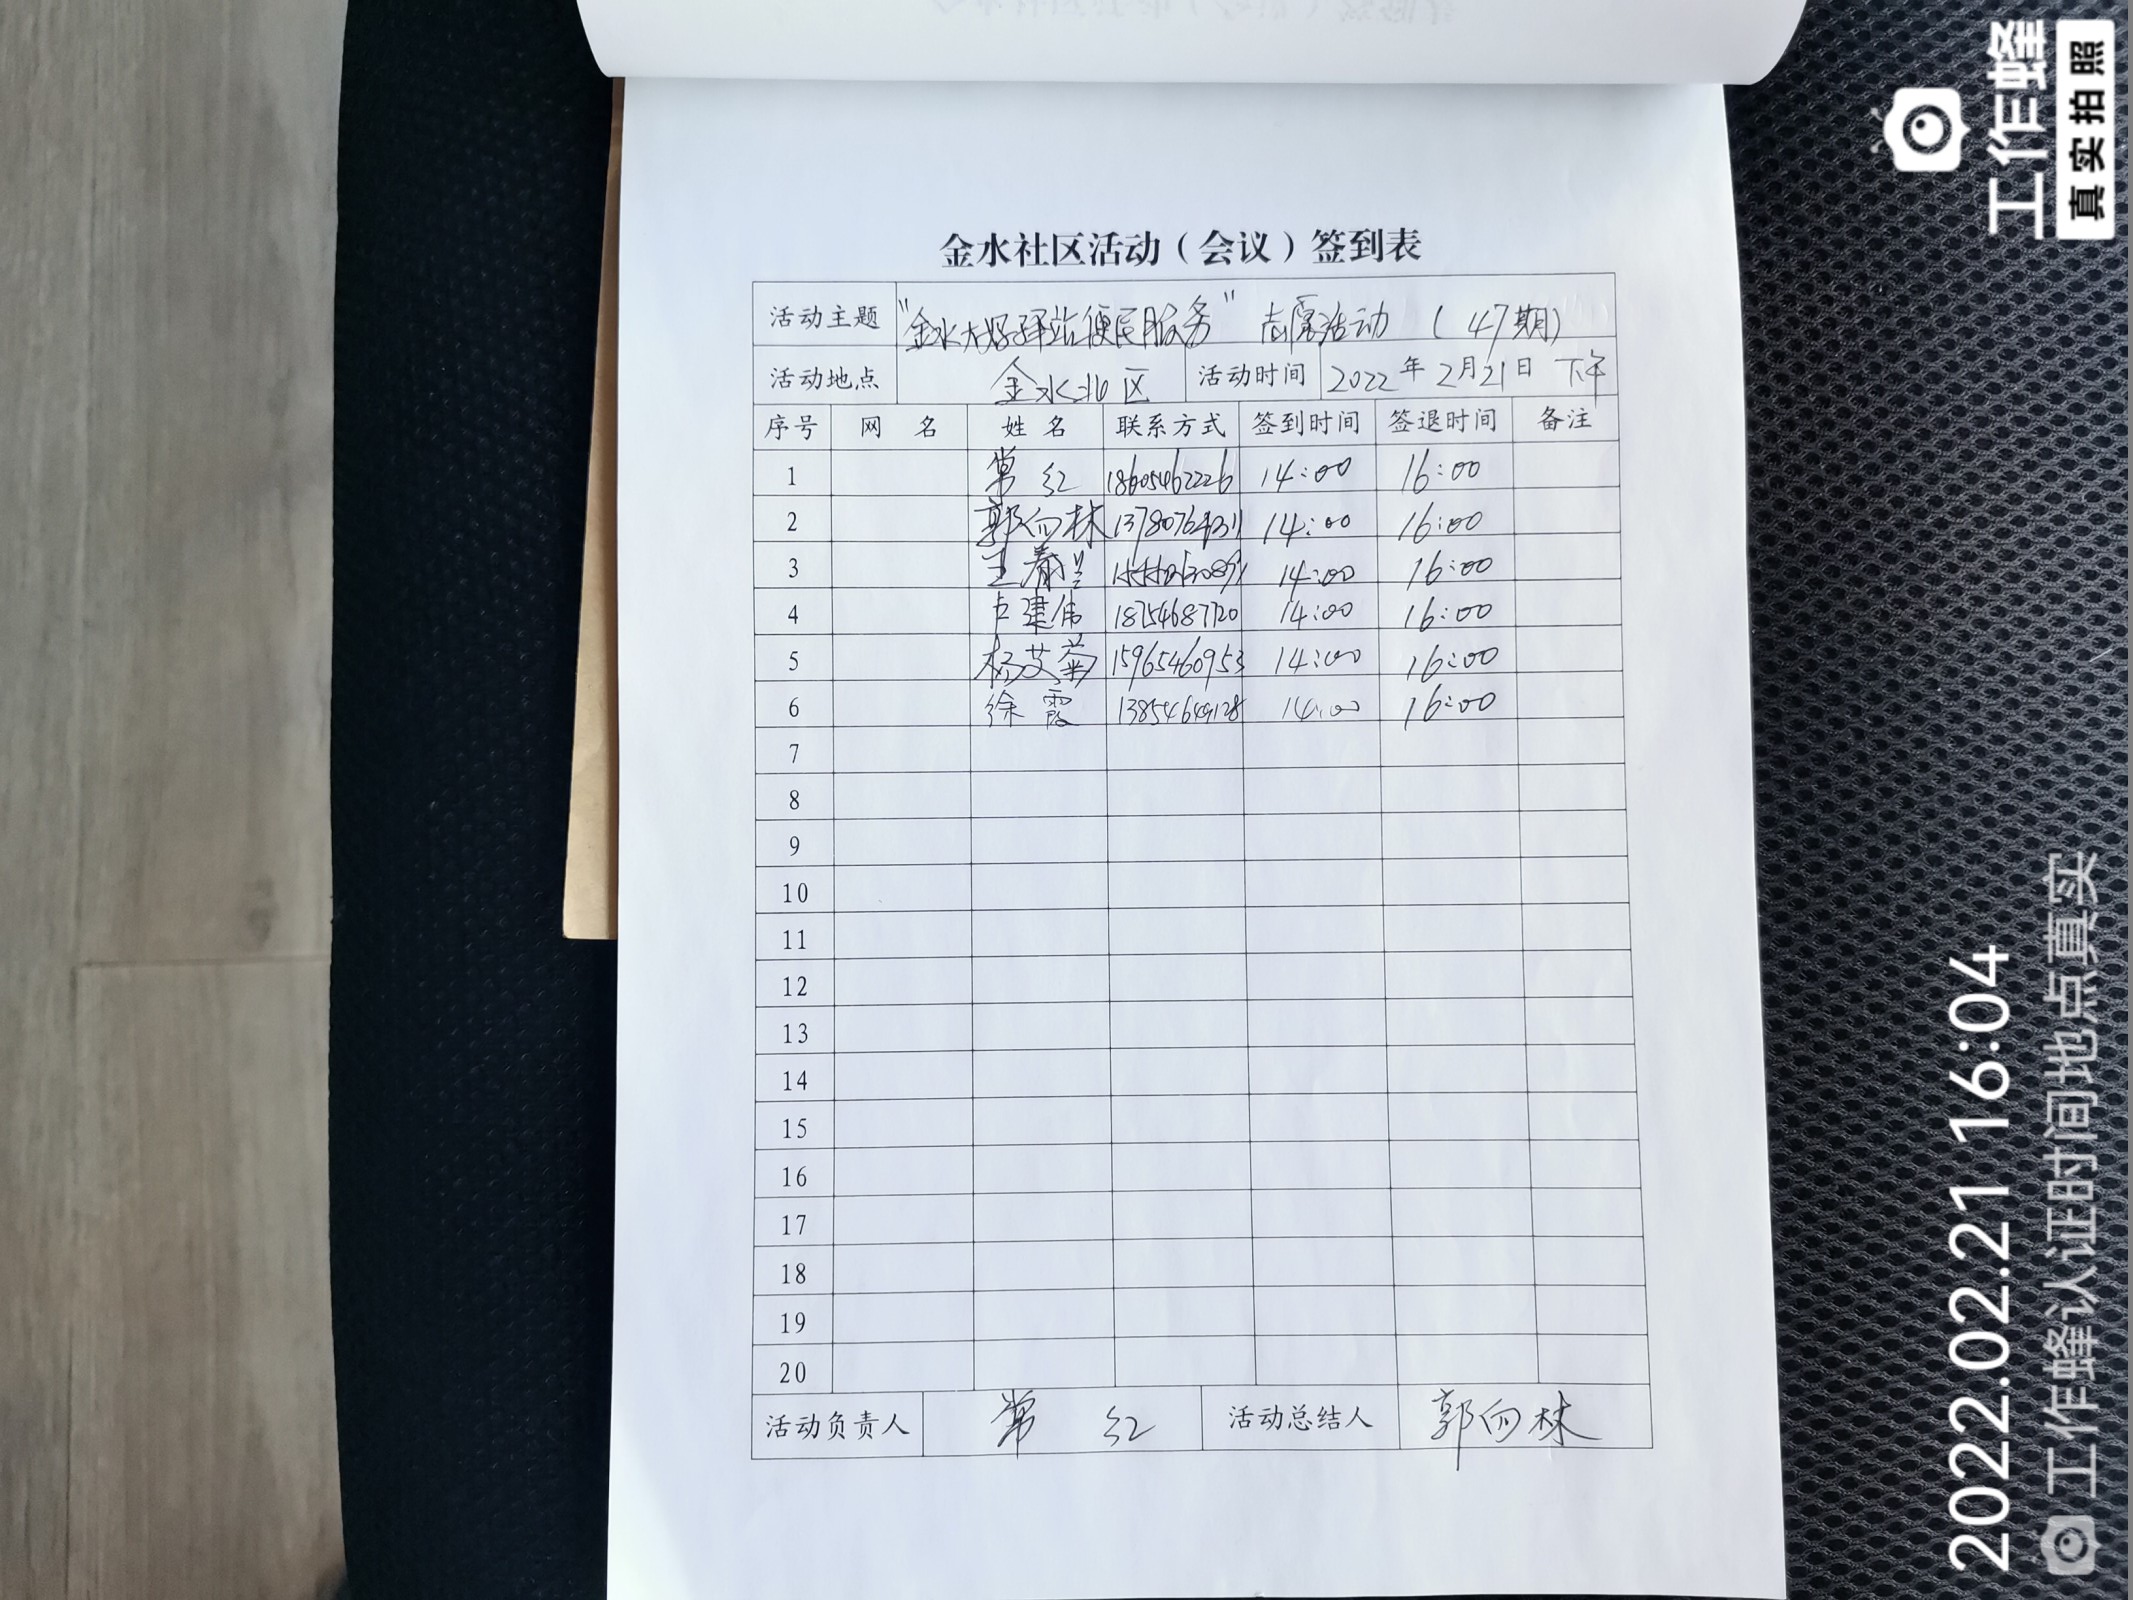 金水社区活动（会议）签到表
活动主题 "金水大嫂驿站便民服务" 志愿活动 （47期）
活动地点 金水北区 活动时间 2022年2月21日 下午
序号 网 名 姓 名 联系方式 签到时间 签退时间 备注
1 常 红 18605462226 14:00 16:00
2 郭向林 14:00 16:00
3 王春兰 14:00 16:00
4 卢建伟 18754687720 14:00 16:00
5 杨艾菊 15965460953 14:00 16:00
6 徐 霞 14:00 16:00
7
8
9
10
11
12
13
14
15
16
17
18
19
20
活动负责人 常 红 活动总结人 郭向林
工作蜂
真实拍照
2022.02.21 16:04
工作蜂认证时间地点真实